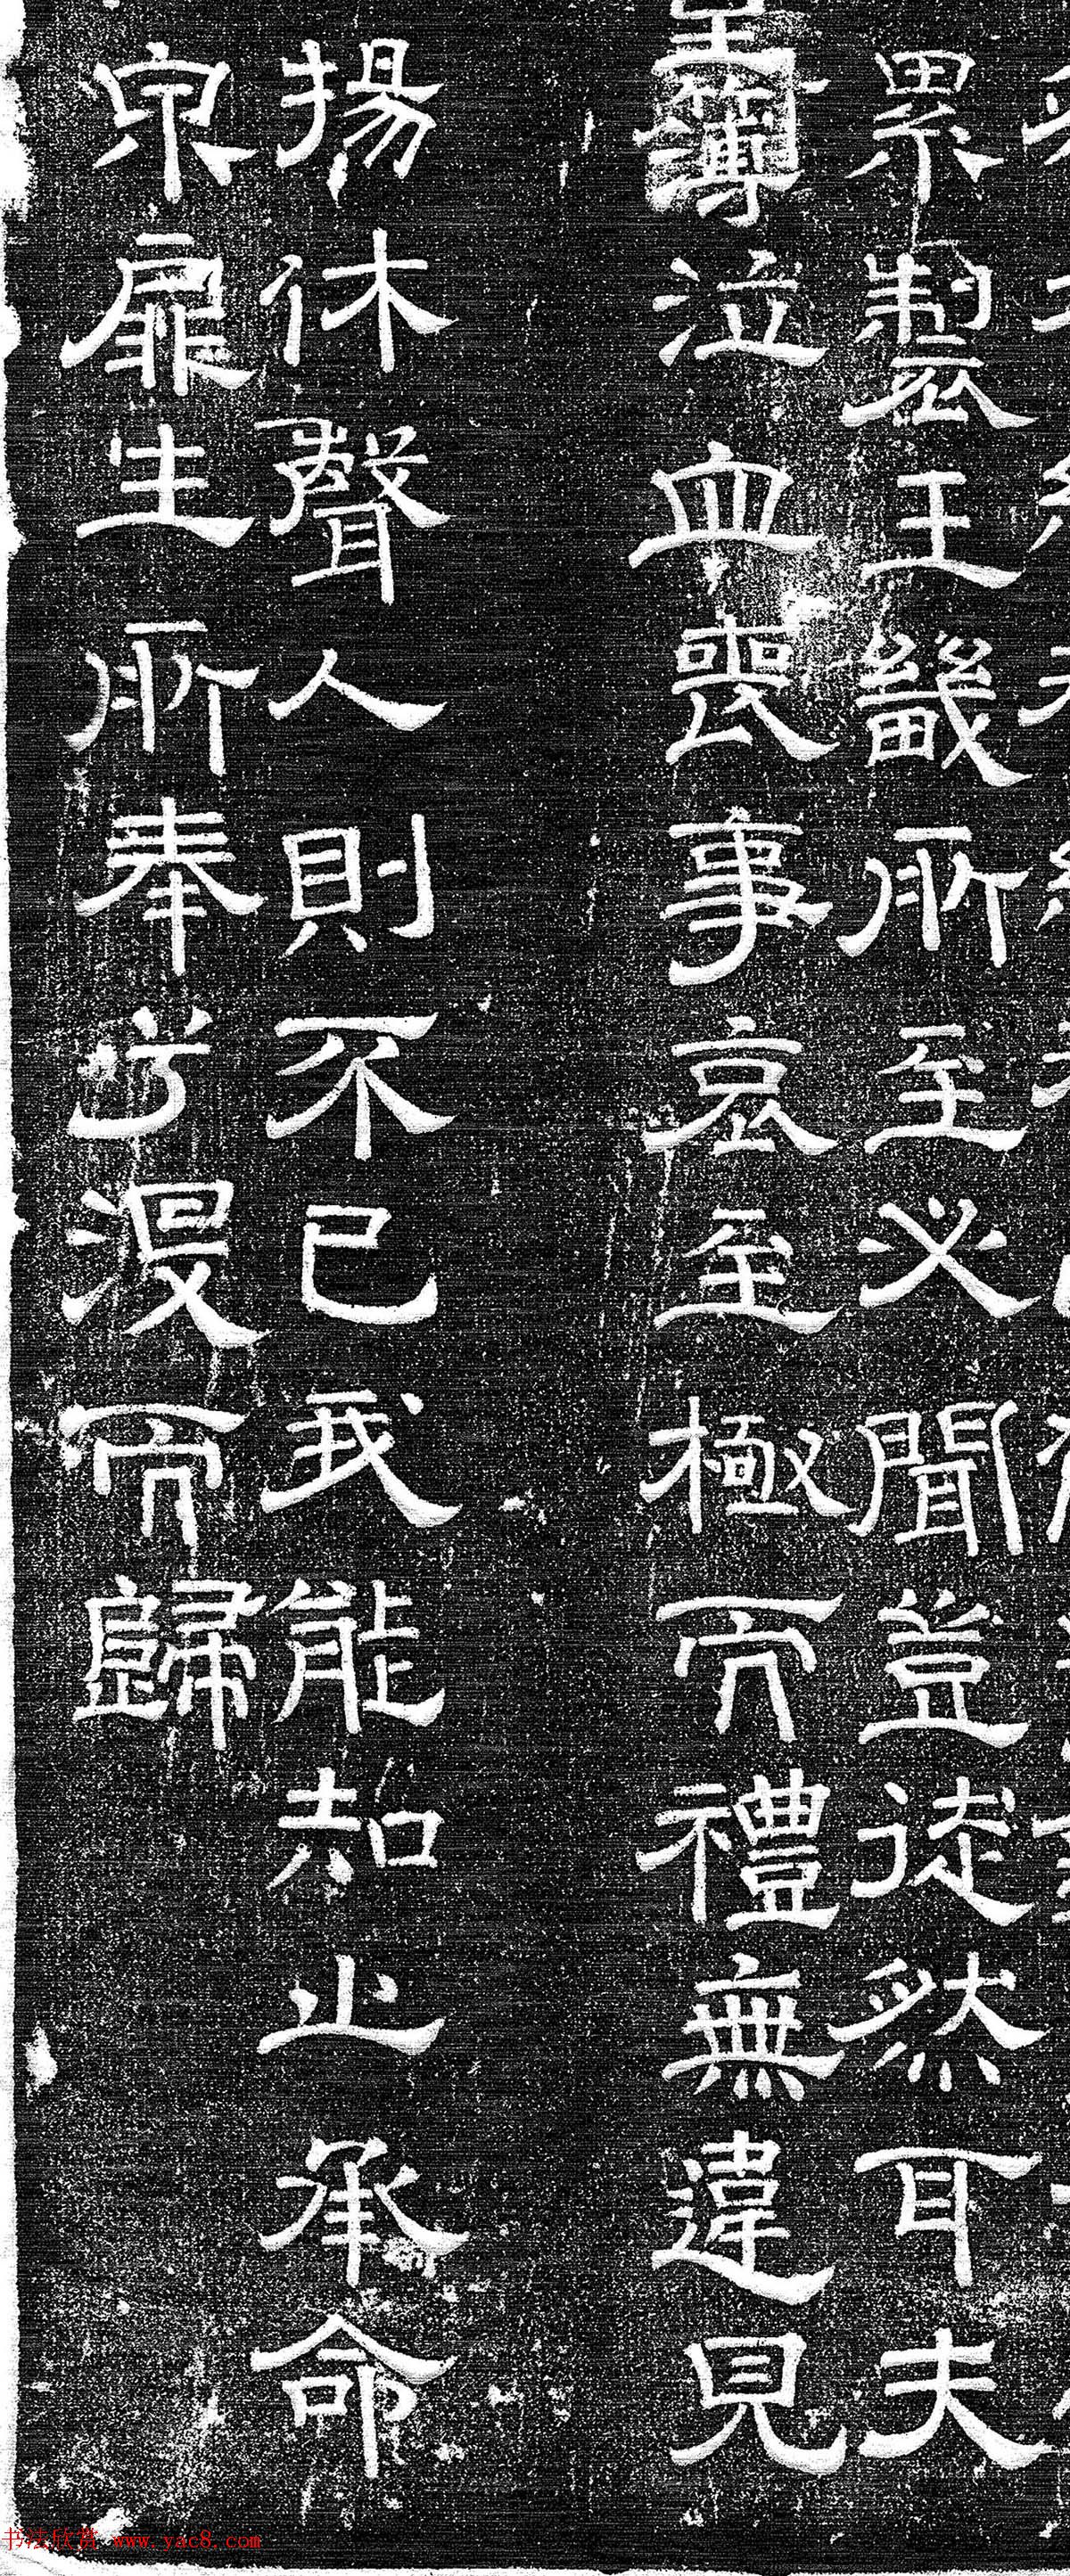 累製玄王畿所至必聞豈徒然耳夫
簿泣血喪事哀至極而禮無違見
揚休聲人則不已我能知止承命
泉扉生所奉兮沒而歸
书法欣赏 www.yac8.com